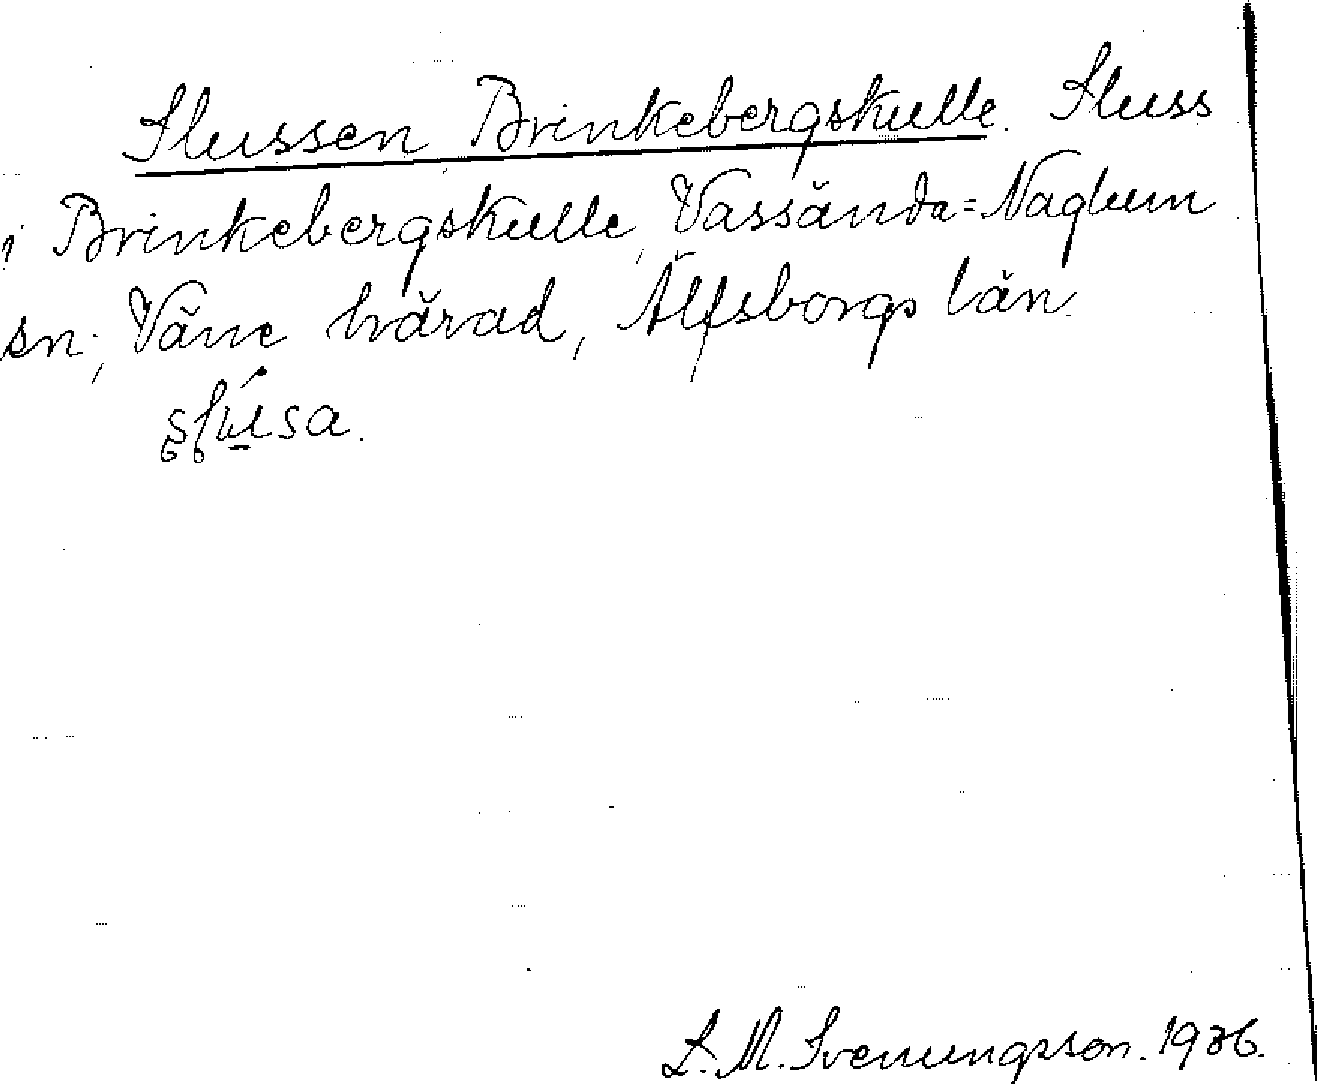 Slussen Brinkebergskulle. Sluss
i Brinkebergskulle, Vassända=Naglum
sn, Väne härad, Älfsborgs län.
L. M. Svenungsson. 1936.